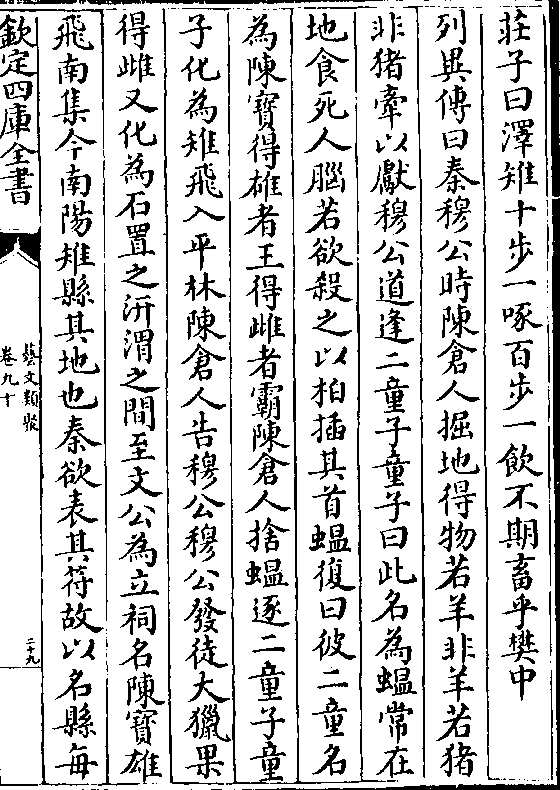 莊子曰澤雉十步一啄百步一飲不期畜乎樊中
列異傳曰秦穆公時陳倉人掘地得物若羊非羊若猪
非猪牽以獻穆公道逢二童子童子曰此名為媪常在
地食死人腦若欲殺之以柏揷其首媪復曰彼二童名
為陳寳得雄者王得雌者霸陳倉人捨媪逐二童子童
子化為雉飛入平林陳倉人告穆公穆公發徒大獵果
得雌又化為石置之汧渭之間至文公為立祠名陳寳雄
飛南集今南陽雉縣其地也秦欲表其符故以名縣每
欽定四庫全書
藝文類聚
卷九十
二十九